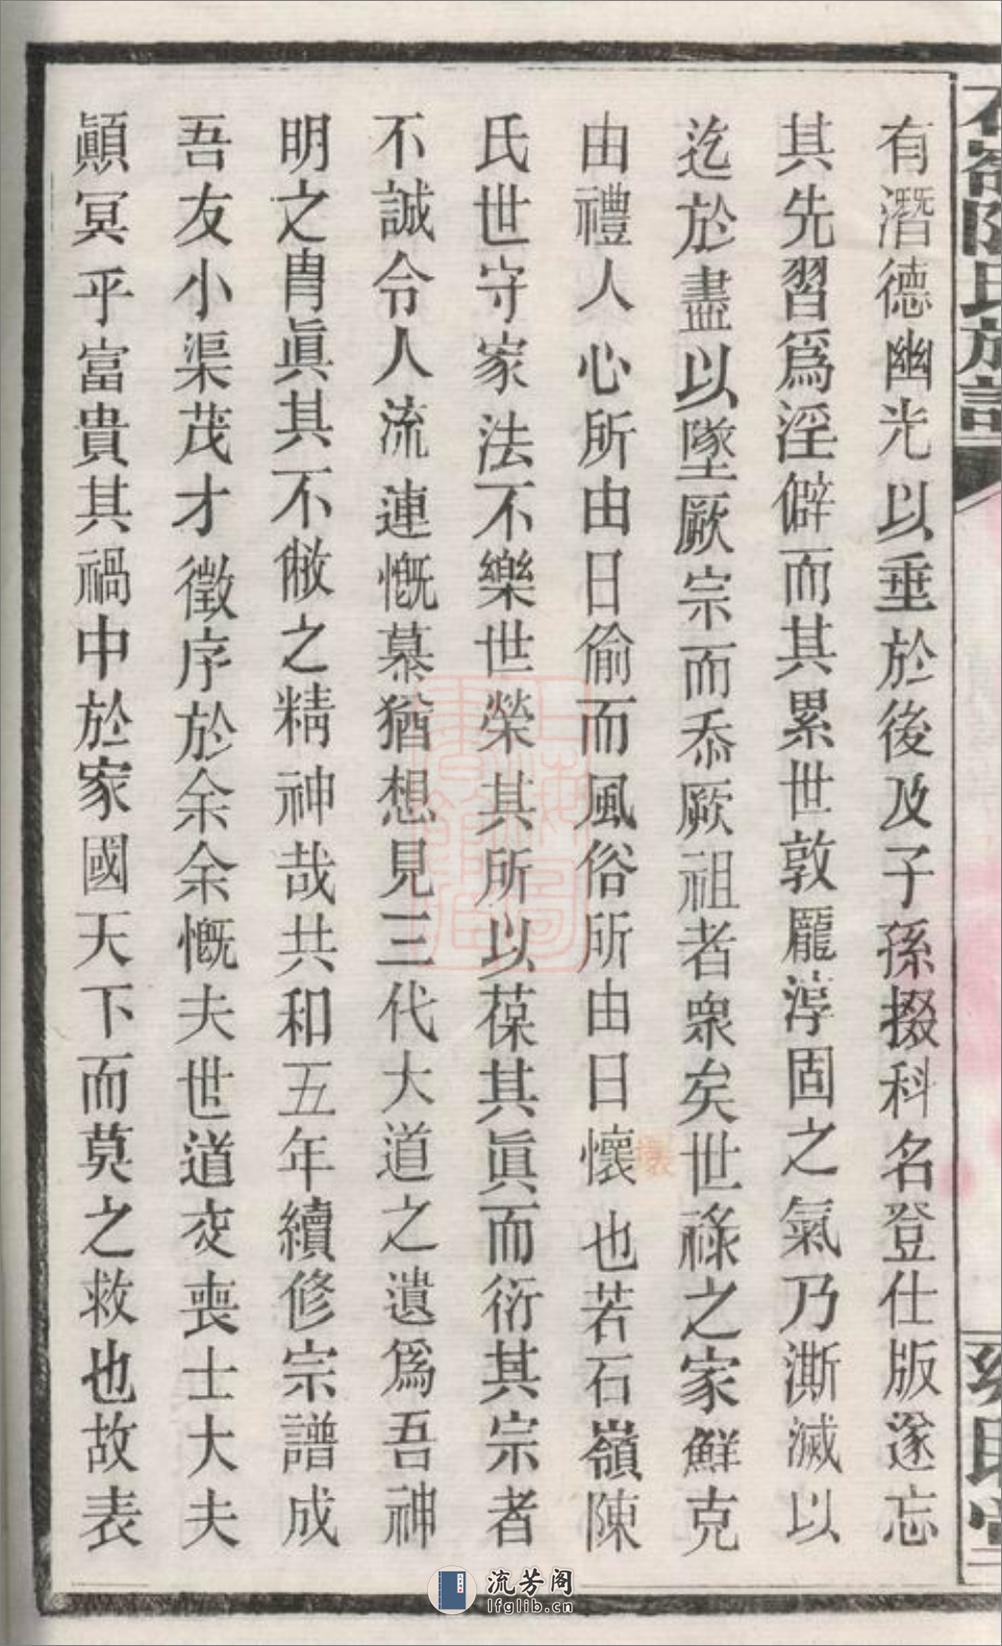 有潛德幽光以垂於後及子孫掇科名登仕版遂忘
其先習爲淫僻而其累世敦龐淳固之氣乃澌滅以
迄於盡以墜厥宗而忝厥祖者衆矣世祿之家鮮克
由禮人心所由日偷而風俗所由日懷也若石嶺陳
氏世守家法不樂世榮其所以葆其眞而衍其宗者
不誠令人流連慨慕猶想見三代大道之遺爲吾神
明之胄眞其不敝之精神哉共和五年續修宗譜成
吾友小渠茂才徵序於余余慨夫世道交喪士大夫
顚冥乎富貴其禍中於家國天下而莫之救也故表
陳氏族譜
流芳阁
lfglib.cn